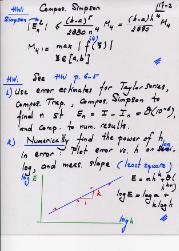 HW: Compos. Simpson 17-2
Simpson → |E_n^c| ≤ (b-a)^5 / 2880 n^4 M_4 = (b-a) h^4 / 2880 M_4
M_4 = max |f^(4)(ξ)|
ξ∈[a,b]
HW: See HW p. 6-5
1) Use error estimates for Taylor series,
Compos. Trap., Compos. Simpson to
find n st E_n = I - I_n = O(10^-6),
and comp. to num. results.
2) Numerically find the power of h
in error: Plot error vs. h on
log, and meas. slope (least square)
E = a h^k
log E = log a +
k log h
E
k
1
log h